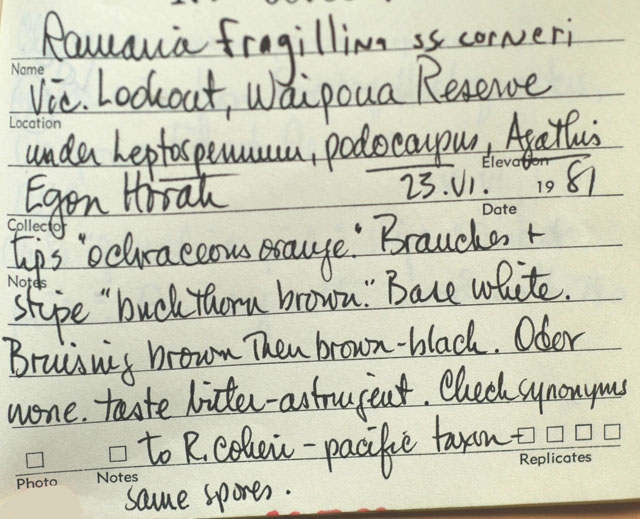 Ramaria fragillina ss corneri
Name
Vic. Lookout, Waipoua Reserve
Location
under Leptospermum, podocarpus, Agathis
Elevation
Egon Horak 23.VI. 19 81
Collector Date
tips "ochraceous orange." Branches +
Notes
stipe "buckthorn brown." Base white.
Bruising brown then brown-black. Odor
none. taste bitter-astringent. Check synonyms
to R. - pacific taxon -
Photo Notes Replicates
same spores.